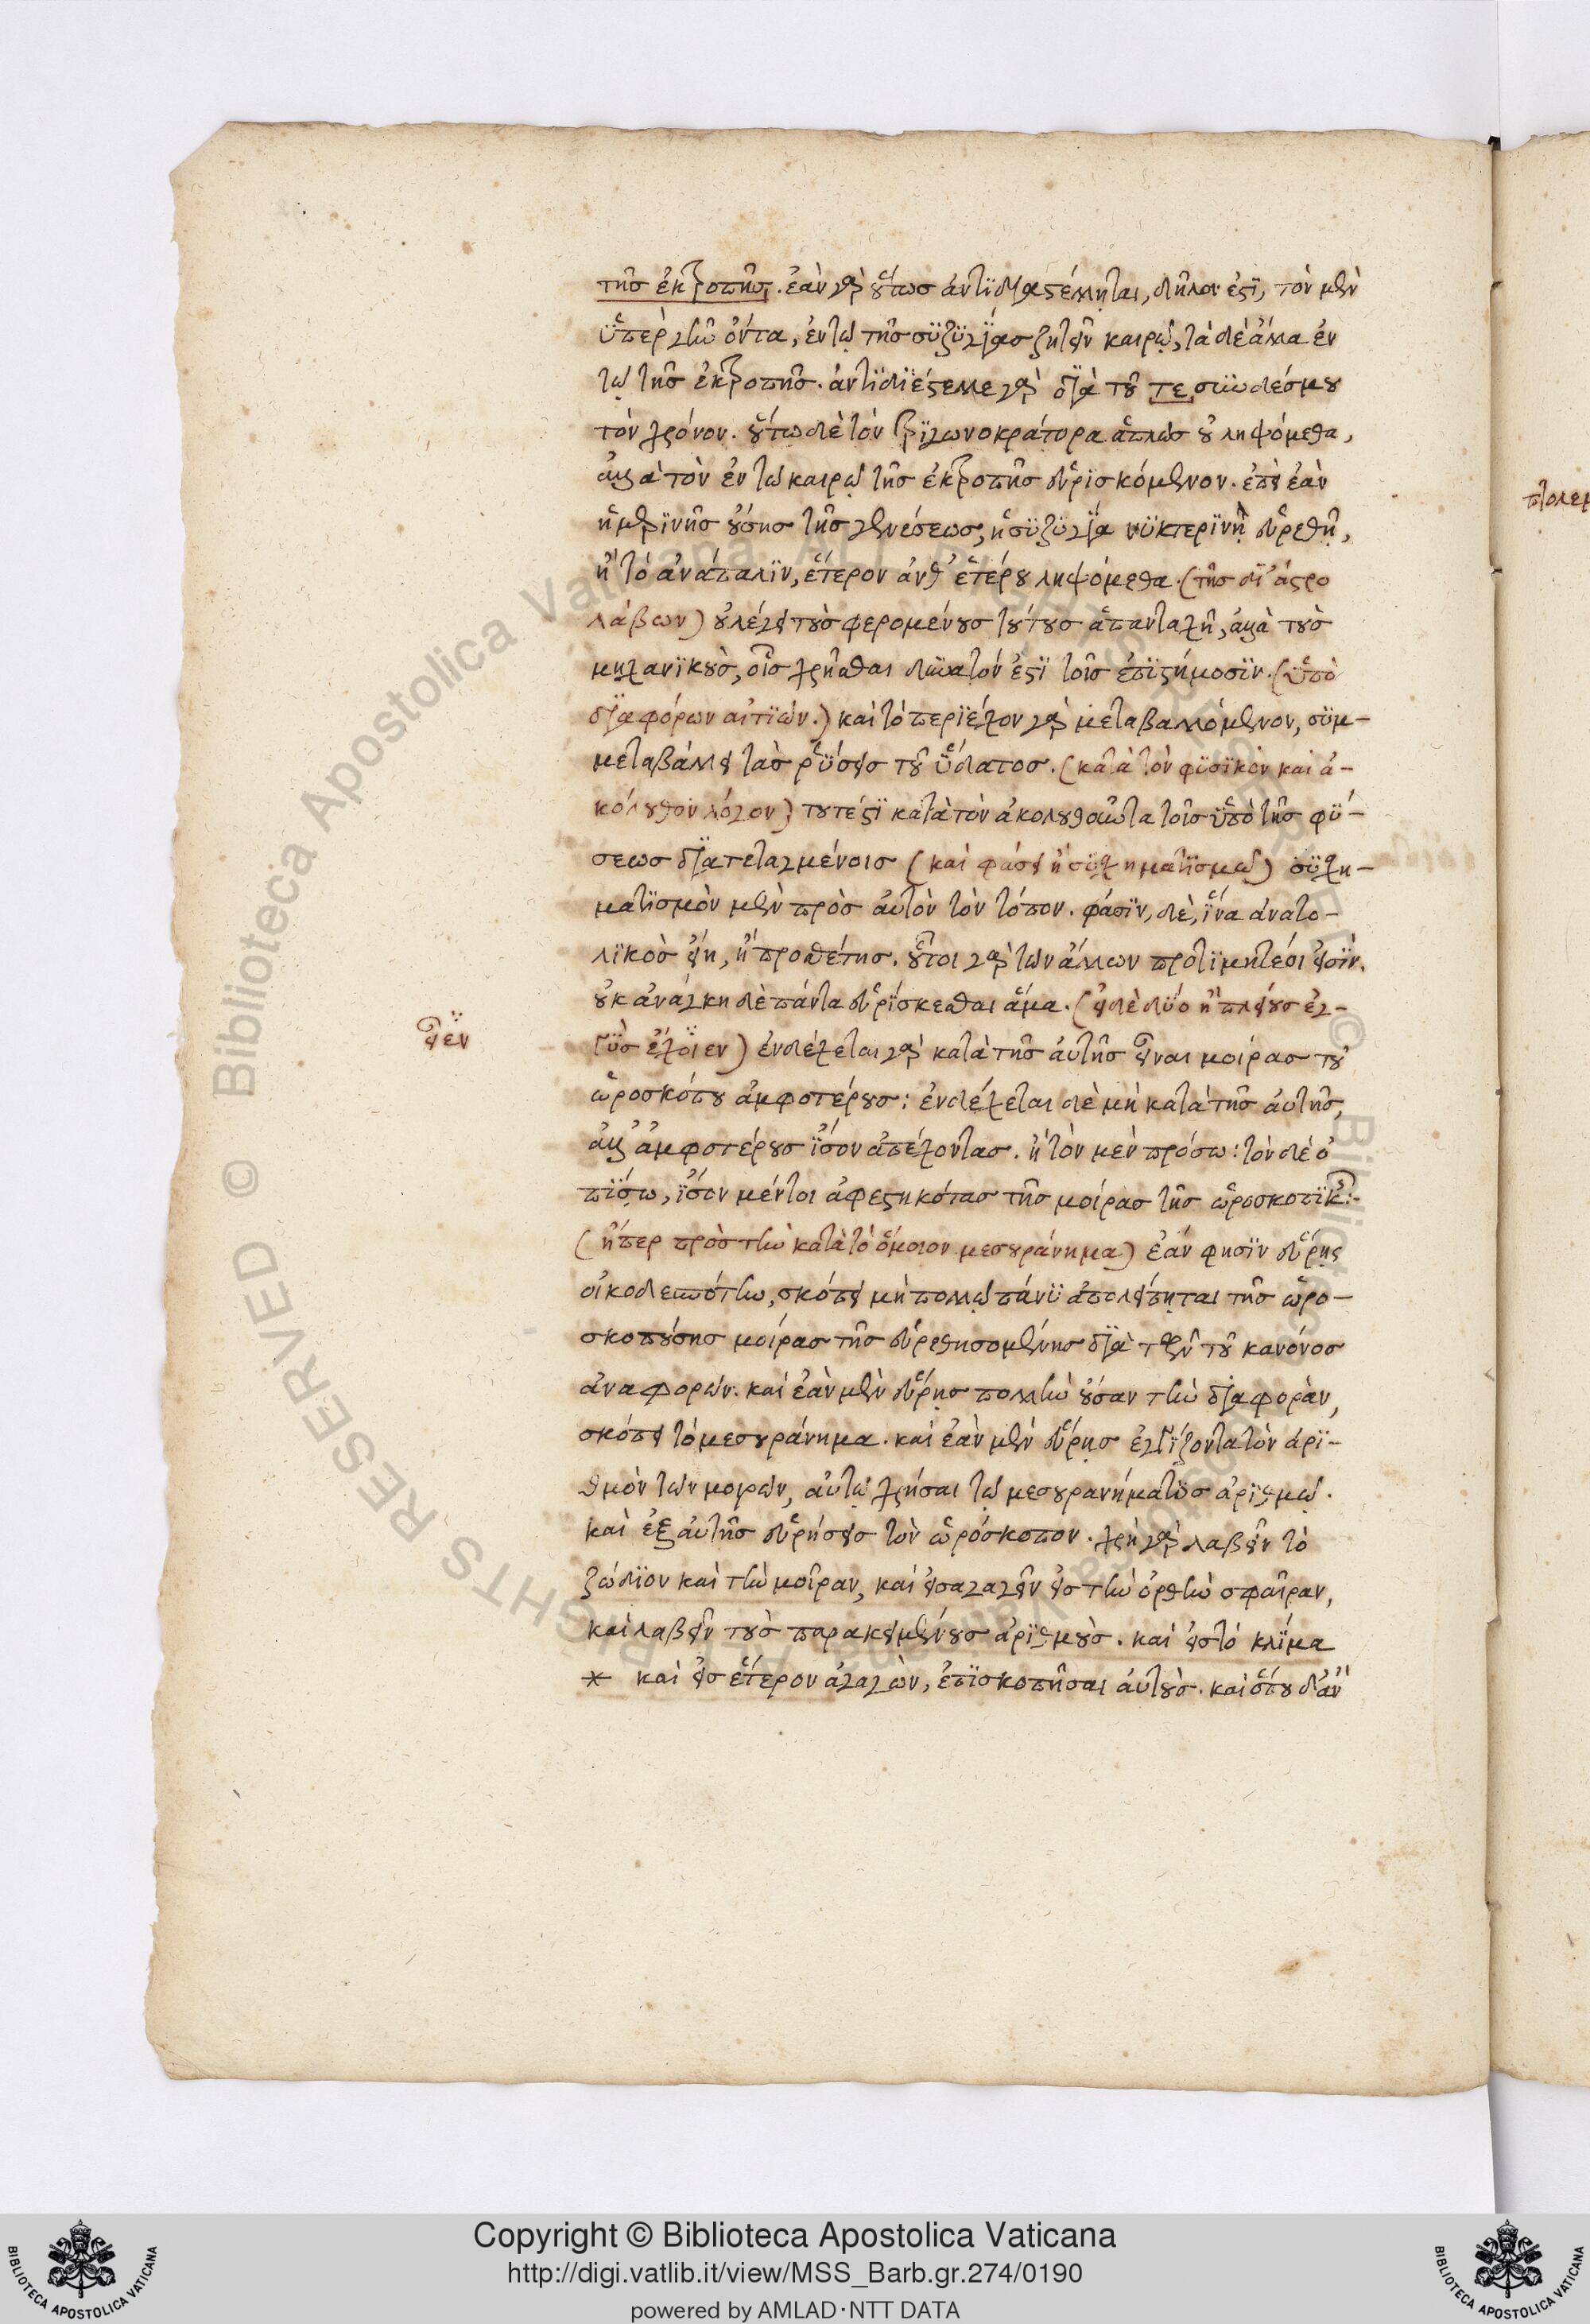 τῆς ἐκτροπῆς. ἐὰν γὰρ οὕτως ἀντιδιαστέλληται, δῆλον ἐστί, τὸν μὲν
ὑπὲρ γῆν ὄντα, ἐν τῷ τῆς συζυγίας ζητεῖν καιρῷ, τὰ δὲ ἄλλα ἐν
τῷ τῆς ἐκτροπῆς. ἀντιδιέστελλε γὰρ διὰ τοῦ τε συνδέσμου
τὸν χρόνον. οὕτω δὲ τὸν τριγωνοκράτορα ἁπλῶς οὐ ληψόμεθα,
ἀλλὰ τὸν ἐν τῷ καιρῷ τῆς ἐκτροπῆς εὑρισκόμενον. ἐπεὶ ἐὰν
ἡμερινῆς οὔσης τῆς γενέσεως, ἡ συζυγία νυκτερινὴ εὑρεθῇ,
ἢ τὸ ἀνάπαλιν, ἕτερον ἀνθ' ἑτέρου ληψόμεθα. (τῆς δι' ἀστρο
λάβων) οὐ λέγει τοὺς φερομένους τούτους ἁπανταχῆ, ἀλλὰ τοὺς
μηχανικοὺς, οἷς χρῆσθαι δυνατόν ἐστι τοῖς ἐπιστήμοσιν. (ὑπὸ
διαφόρων αἰτιῶν.) καὶ τὸ περιέχον γὰρ μεταβαλλόμενον, συμ-
μεταβάλλει τὰς ῥύσεις τοῦ ὕδατος. (κατὰ τὸν φυσικὸν καὶ ἀ-
κόλουθον λόγον) τουτέστι κατὰ τὸν ἀκολουθοῦντα τοῖς ὑπὸ τῆς φύ-
σεως διατεταγμένοις (καὶ φάσει ἢ συσχηματισμῷ) συσχη-
ματισμὸν μὲν πρὸς αὐτὸν τὸν τόπον. φάσιν, δὲ, ἵνα ἀνατο-
λικὸς εἴη, ἢ προσθέτης. οὗτοι γὰρ τῶν ἄλλων προτιμητέοι εἰσίν.
οὐκ ἀνάγκη δὲ πάντα εὑρίσκεσθαι ἅμα. (εἰ δὲ δύο ἢ πλείους ἐγ-
εἶεν
γὺς ἔχοιεν) ἐνδέχεται γὰρ κατὰ τῆς αὐτῆς εἶναι μοίρας τοῦ
ὡροσκόπου ἀμφοτέρους: ἐνδέχεται δὲ μὴ κατὰ τῆς αὐτῆς,
ἀλλ' ἀμφοτέρους ἴσον ἀπέχοντας. ἢ τὸν μὲν πρόσω: τὸν δὲ ὀ
πίσω, ἴσον μέντοι ἀφεστηκότας τῆς μοίρας τῆς ὡροσκοπικ:-
(ἤπερ πρὸς τὴν κατὰ τὸ ὅμοιον μεσουράνημα) ἐάν φησιν εὕρῃς
οἰκοδεσπότην, σκόπει μὴ πολλῷ πάνυ ἀπολείπηται τῆς ὡρο-
σκοπούσης μοίρας τῆς εὑρεθησομένης διὰ τῶν τοῦ κανόνος
ἀναφορῶν. καὶ ἐὰν μὲν εὕρῃς πολλὴν οὖσαν τὴν διαφορὰν,
σκόπει τὸ μεσουράνημα. καὶ ἐὰν μὲν εὕρῃς ἐγγίζοντα τὸν ἀρι-
θμὸν τῶν μοιρῶν, αὐτῷ χρῆσαι τῷ μεσουρανήματος ἀριθμῷ.
καὶ ἐξ αὐτῆς εὑρήσεις τὸν ὡρόσκοπον. χρὴ γὰρ λαβεῖν τὸ
ζώδιον καὶ τὴν μοῖραν, καὶ εἰσαγαγεῖν εἰς τὴν ὀρθὴν σφαῖραν,
καὶ λαβεῖν τοὺς παρακειμένους ἀριθμοὺς. καὶ εἰς τὸ κλίμα
* καὶ εἰς ἕτερον ἀγαγὼν, ἐπισκοπῆσαι αὐτοὺς. καὶ ὅπου δ' ἂν
Copyright © Biblioteca Apostolica Vaticana
http://digi.vatlib.it/view/MSS_Barb.gr.274/0190
powered by AMLAD·NTT DATA
BIBLIOTECA APOSTOLICA VATICANA
BIBLIOTECA APOSTOLICA VATICANA